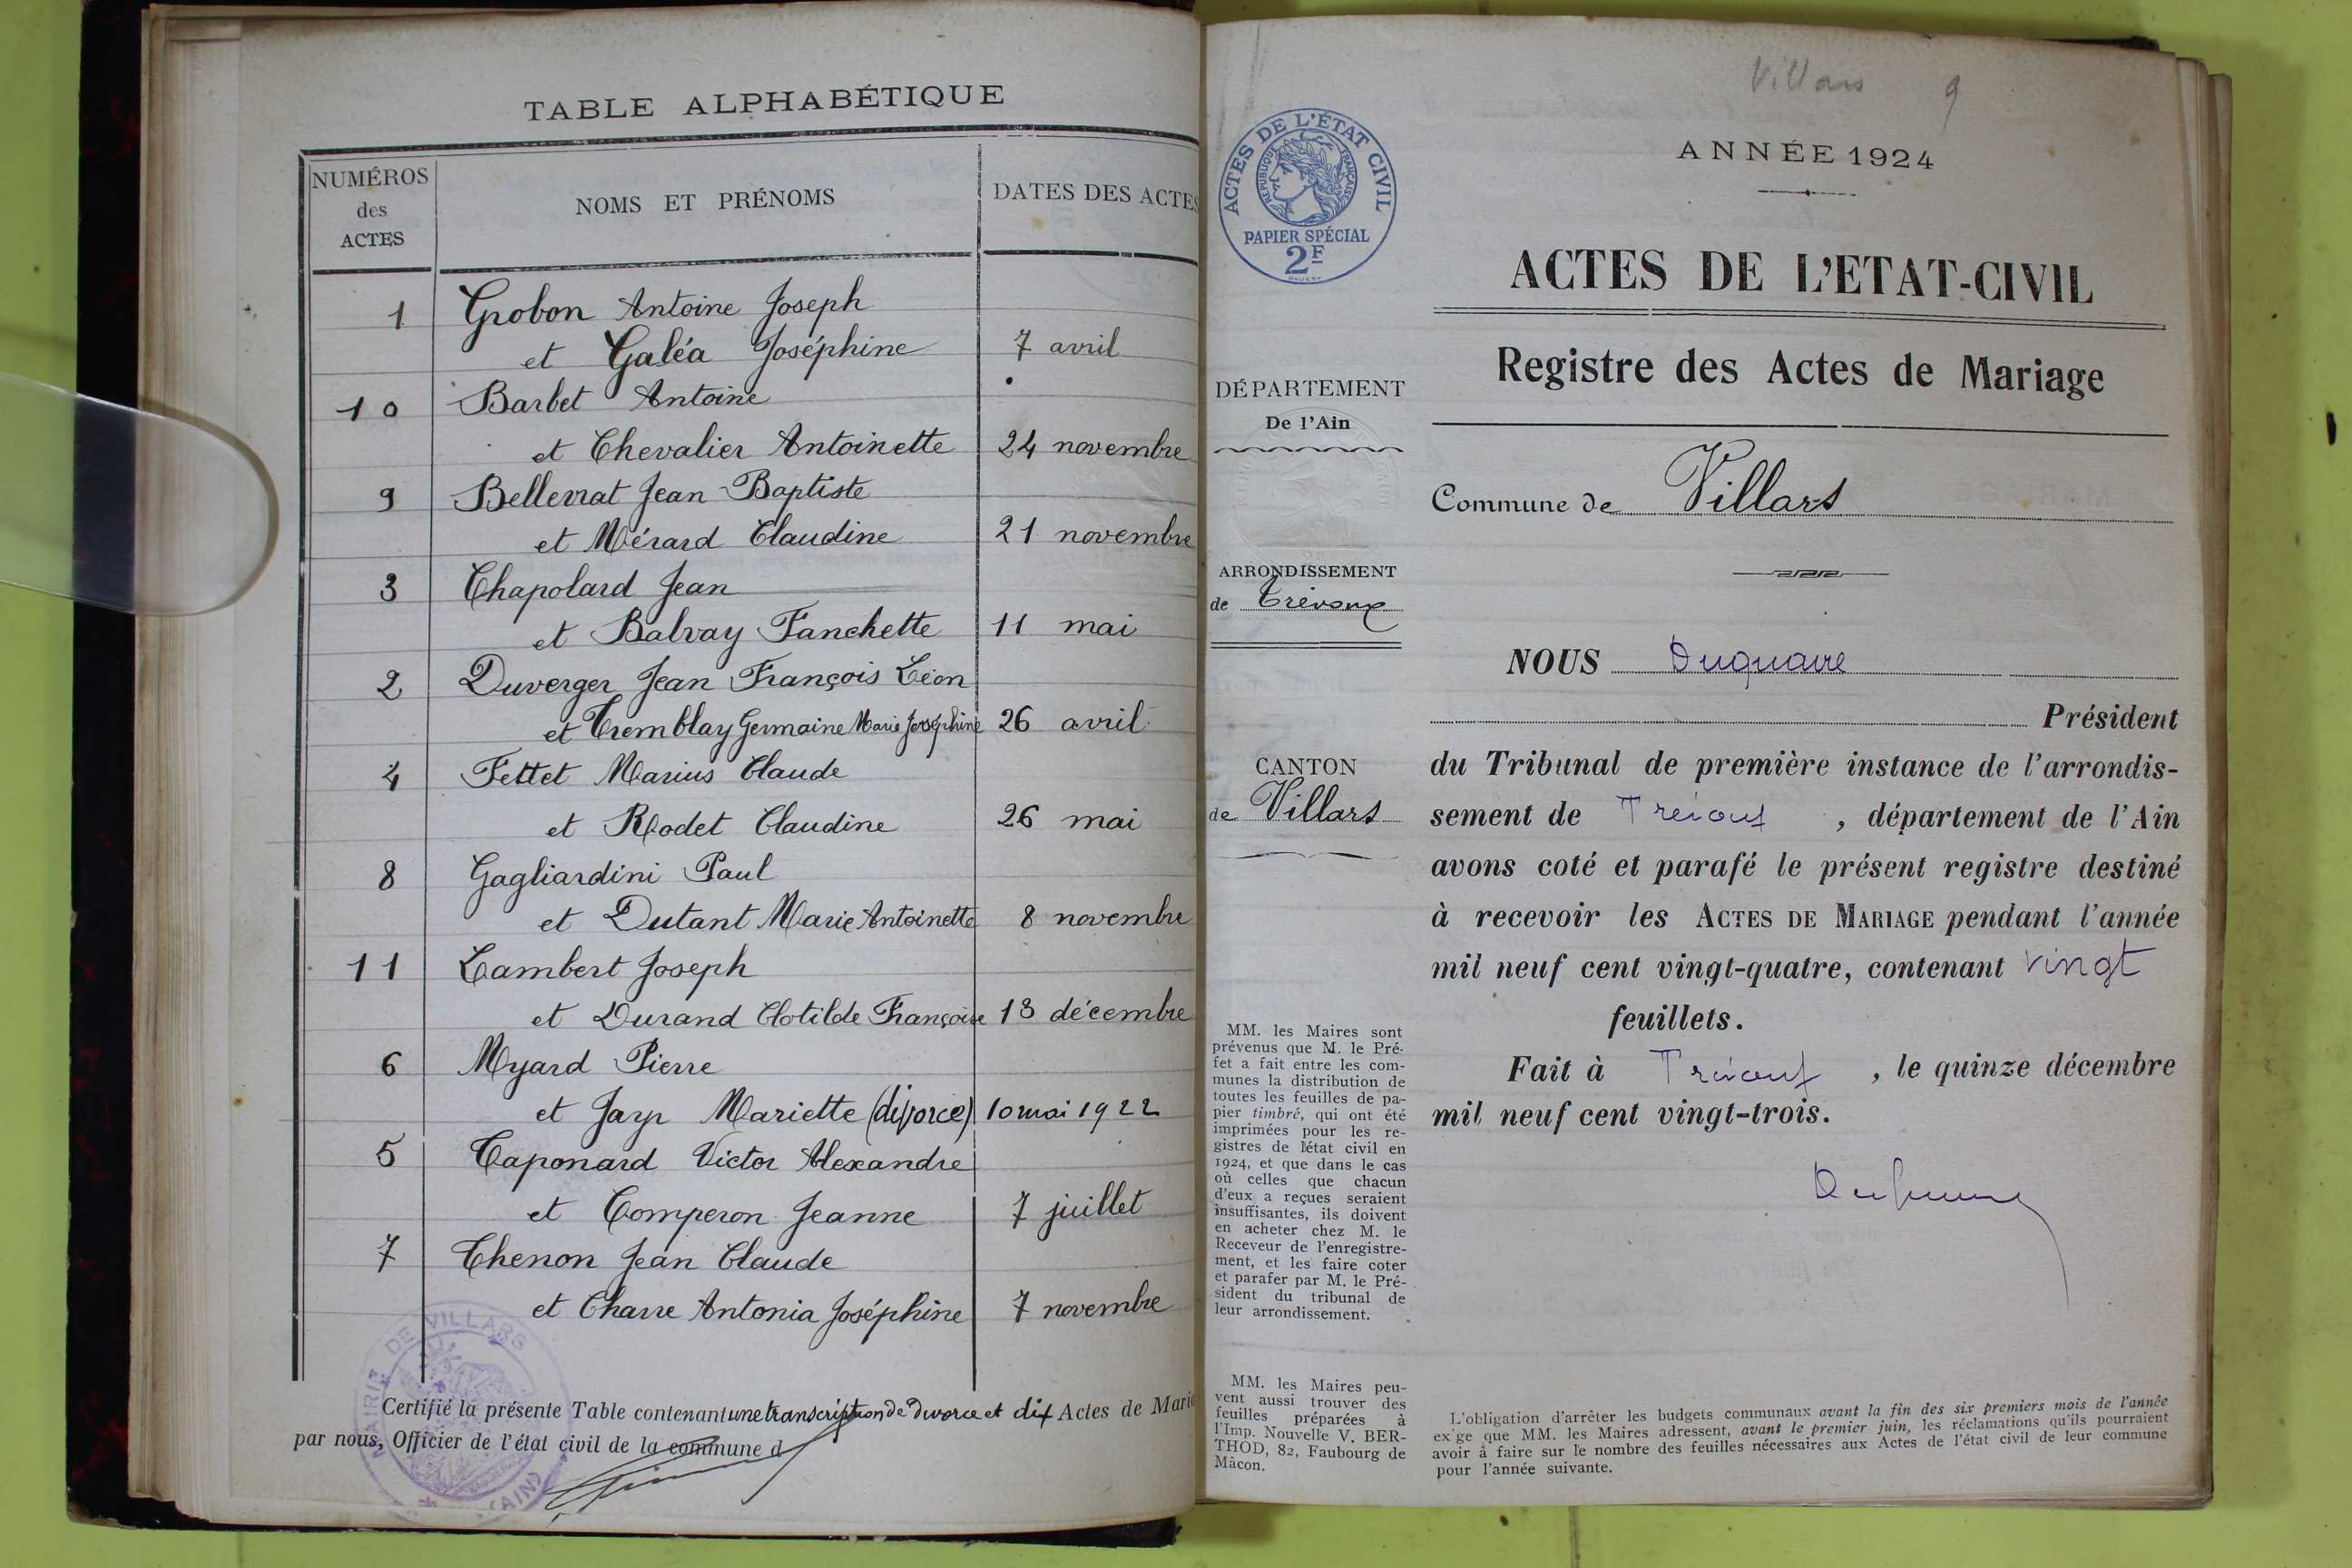 TABLE ALPHABÉTIQUE
NUMÉROS des ACTES
NOMS ET PRÉNOMS
DATES DES ACTES
1 Grobon Antoine Joseph
et Galéa Joséphine 7 avril
10 Barbet Antoine
et Chevalier Antoinette 24 novembre
9 Bellevrat Jean-Baptiste
et Mérard Claudine 21 novembre
3 Chapolard Jean
et Balvay Fanchette 11 mai
2 Duverger Jean François Léon
et Tremblay Germaine Marie Joséphine 26 avril
4 Fettet Marius Claude
et Rodet Claudine 26 mai
8 Gagliardini Paul
et Dutant Marie Antoinette 8 novembre
11 Lambert Joseph
et Durand Clotilde Françoise 13 décembre
6 Myard Pierre
et Jayr Mariette (divorce) 10 mai 1922
5 Taponard Victor Alexandre
et Comperon Jeanne 7 juillet
7 Thenon Jean Claude
et Charre Antonia Joséphine 7 novembre
MAIRIE DE VILLARS
(AIN)
Certifié la présente Table contenant une transcription de divorce et dix Actes de Maria
par nous, Officier de l'état civil de la commune d
Villars 9
ACTES DE L'ÉTAT CIVIL
RÉPUBLIQUE FRANÇAISE
PAPIER SPÉCIAL
2F
ANNÉE 1924
ACTES DE L'ETAT-CIVIL
Registre des Actes de Mariage
DÉPARTEMENT
De l'Ain
Commune de Villars
ARRONDISSEMENT
de Trévoux
CANTON
de Villars
NOUS Duquaire
Président
du Tribunal de première instance de l'arrondis-
sement de Trévoux, département de l'Ain
avons coté et parafé le présent registre destiné
à recevoir les ACTES DE MARIAGE pendant l'année
mil neuf cent vingt-quatre, contenant vingt
feuillets.
Fait à Trévoux, le quinze décembre
mil neuf cent vingt-trois.
MM. les Maires sont
prévenus que M. le Pré-
fet a fait entre les com-
munes la distribution de
toutes les feuilles de pa-
pier timbré, qui ont été
imprimées pour les re-
gistres de l'état civil en
1924, et que dans le cas
où celles que chacun
d'eux a reçues seraient
insuffisantes, ils doivent
en acheter chez M. le
Receveur de l'enregistre-
ment, et les faire coter
et parafer par M. le Pré-
sident du tribunal de
leur arrondissement.
MM. les Maires peu-
vent aussi trouver des
feuilles préparées à
l'Imp. Nouvelle V. BER-
THOD, 82, Faubourg de
Mâcon.
L'obligation d'arrêter les budgets communaux avant la fin des six premiers mois de l'année
ex'ge que MM. les Maires adressent, avant le premier juin, les réclamations qu'ils pourraient
avoir à faire sur le nombre des feuilles nécessaires aux Actes de l'état civil de leur commune
pour l'année suivante.